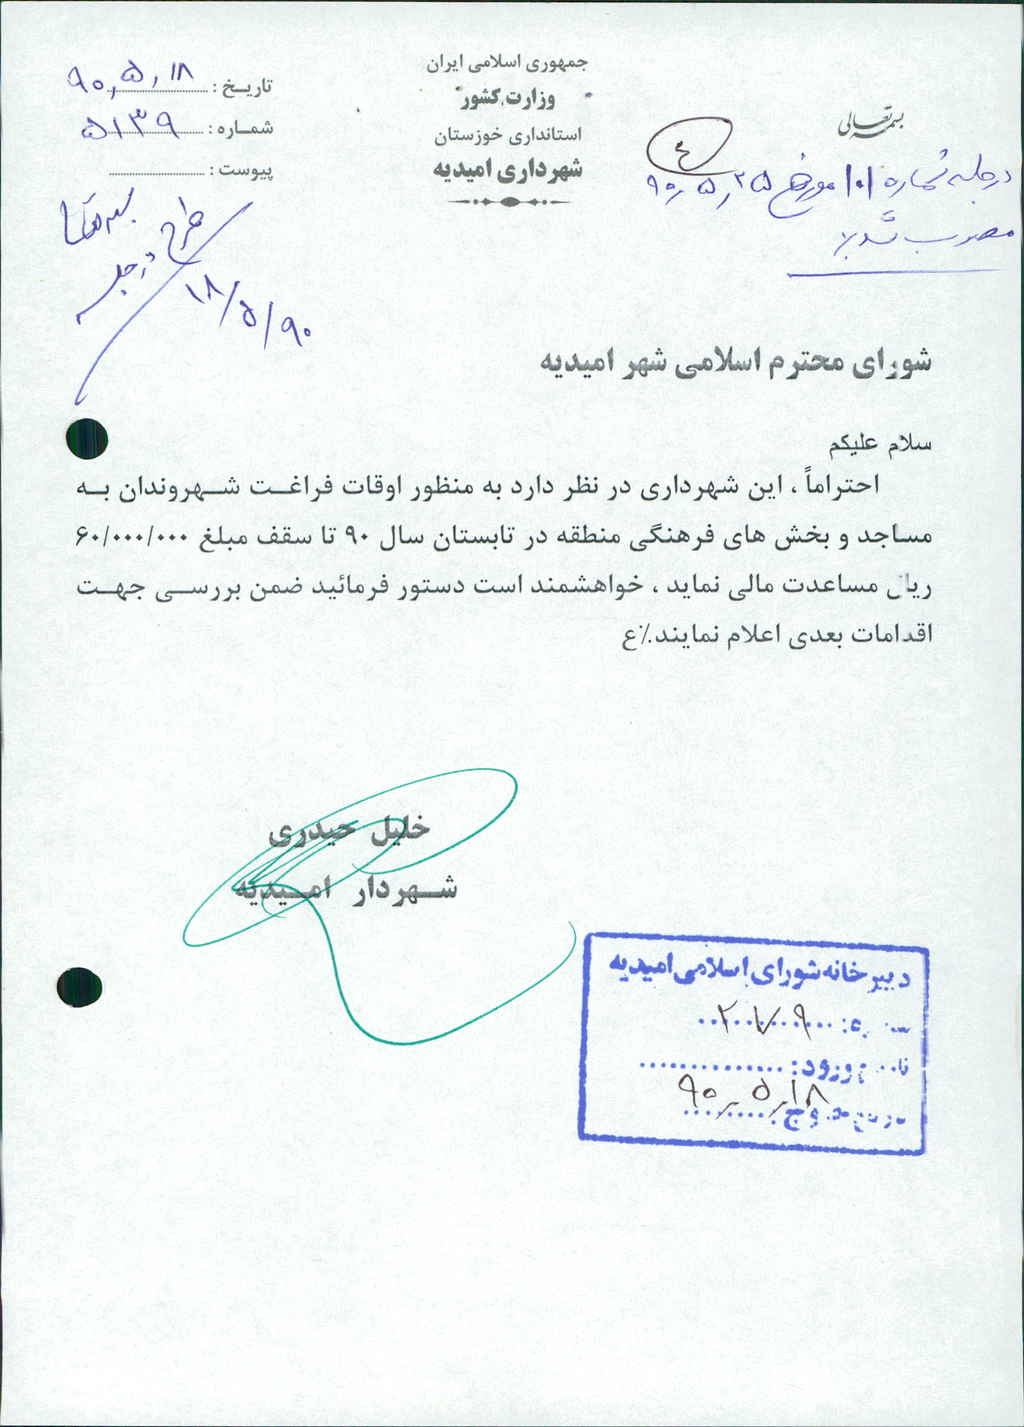 بسمه تعالی
جمهوری اسلامی ایران
وزارت کشور
استانداری خوزستان
شهرداری امیدیه
تاریخ : ۹۰٫۵٫۱۸
شماره : ۵۱۳۹
پیوست :
۴
در جلسه شماره ۱۰۱ مورخ ۹۰٫۵٫۲۵
مصوب شد
بسمه تعالی
طرح در جلسه
۹۰/۵/۱۸
شورای محترم اسلامی شهر امیدیه
سلام علیکم
احتراماً ، این شهرداری در نظر دارد به منظور اوقات فراغت شهروندان به
مساجد و بخش های فرهنگی منطقه در تابستان سال ۹۰ تا سقف مبلغ ۶۰/۰۰۰/۰۰۰
ریال مساعدت مالی نماید ، خواهشمند است دستور فرمائید ضمن بررسی جهت
اقدامات بعدی اعلام نمایند.٪ع
خلیل حیدری
شهردار امیدیه
دبیرخانه شورای اسلامی امیدیه
ورود:
۹۰٫۵٫۱۸